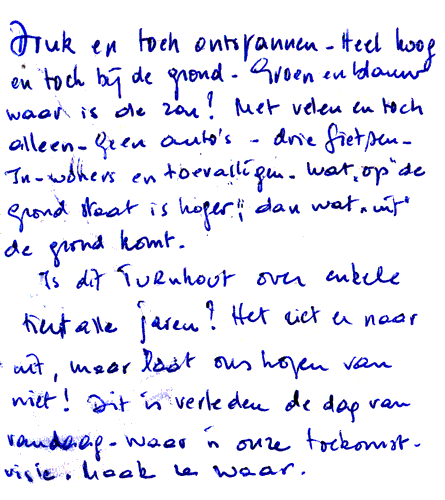 Druk en toch ontspannen - Heel hoog
en toch bij de grond - Groen en blauw
waar is de zon? Met velen en toch
alleen - Geen auto's - drie fietsen -
In-woners en toevalligen - Wat "op" de
grond staat is hoger; dan wat "uit"
de grond komt.
Is dit Turnhout over enkele
tientalle jaren? Het ziet er naar
uit, maar laat ons hopen van
niet! Dit is verleden de dag van
vandaag - waar is onze toekomst-
visie. Maak ze waar.